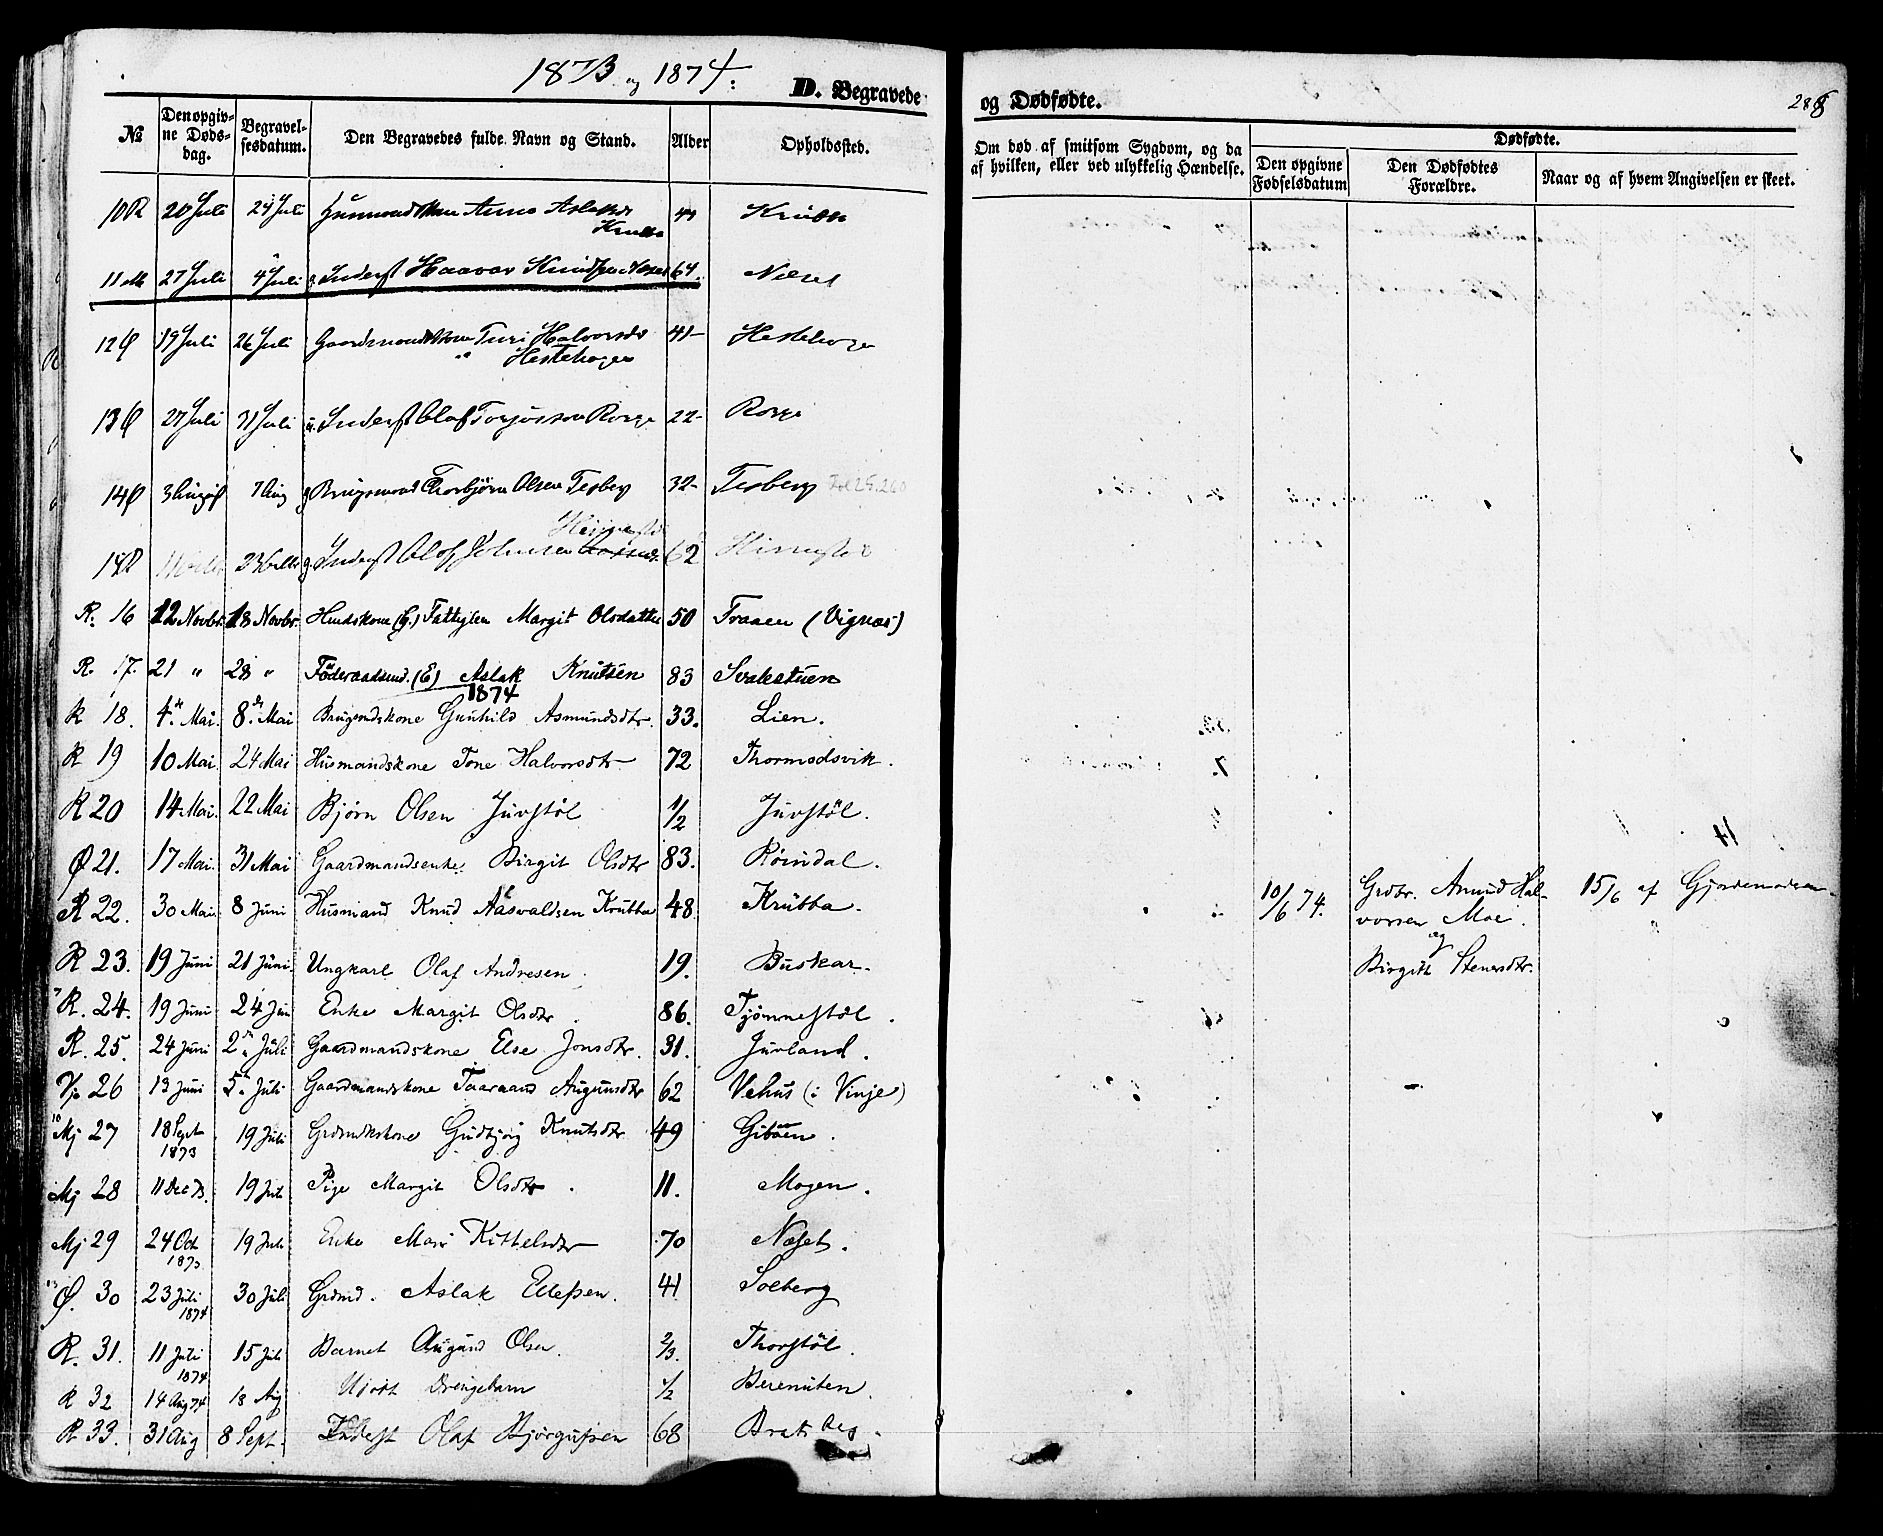 1873 og 1874:
D. Begravede
og Dødfødte.
288
№
Den opgivne Døds-dag.
Begravel-sesdatum.
Den Begravedes fulde Navn og Stand.
Alder
Opholdssted.
Om død af smitsom Sygdom, og da
af hvilken, eller ved ulykkelig Hændelse.
Dødfødte.
Den opgivne Fødselsdatum
Den Dødfødtes Forældre.
Naar og af hvem Angivelsen er skeet.
10 R 20 Juli 24 Juli Anne Aslaksdr
11 M 27 Juli 4 Juli g Inderst Haavar Knudsen 64.
12 Ø 19 Juli 26 Juli Gaardmandskone Turi Halvorsdr 41- Hestehogen
" Hestehogen
13 Ø 27 Juli 31 Juli u. Inderst Olaf Torjusson Rorge 22- Rorge
14 Ø 3 August 7 Aug g Brugsmand Thorbjørn Olsen Tesberg 32- Tesberg
15 R g Inderst Olaf Johnsen 62
R. 16 12 Novbr. 18 Novbr. Husdskone (G.) Fattiglem Margit Olsdatter 50 Traaen (Vignæs)
R. 17. 21 " 28 " Föderaadsmd. (E) Aslak Knutsen 83 Svalestuen
1874
R 18. 4de Mai. 8de Mai Brugsmdskone Gunhild Asmundsdtr. 33. Lien.
R 19 10 Mai. 24 Mai Husmandskone Tone Halvorsdtr 72 Thormodsvik.
R 20 14 Mai. 22 Mai Bjørn Olsen Juvstöl 1/2 Juvstöl.
Ø 21. 17 Mai. 31 Mai Gaardmandsenke Birgit Olsdtr 83. Röindal.
R 22. 30 Mai 8 Juni Husmand Knud Aasvaldsen Krubba 48 Krubba.
10/6 74. Grdbr. Amund Hal-
vorsen Moe.
og
Birgith Stenersdtr.
15/6 af Gjordemoderen.
R 23. 19 Juni 21 Juni. Ungkarl Olaf Andresen 19. Buskar.
R. 24. 19 Juni 24 Juni Enke Margit Olsdtr. 86. Tjönnestöl.
R. 25. 24 Juni 2den Juli Gaardmandskone Else Jonsdtr. 31. Juvland.
V. 26 13 Juni 5te Juli Gaardmandskone Taarand Augunsdtr 62 Vehus (: Vinje)
Mj 27 18 Sept 1873 19 Juli Grdmdskone Gudbjörg Knutsdtr 49 Gibøen.
Mj 28 11 Dec 73. 19 Juli Pige Margit Olsdtr. 11. Mogen.
Mj 29 24 Oct 1873 19 Juli Enke Mari Kittelsdtr 70 Næset.
Ø. 30 23 Juli 1874 30 Juli Grdmd. Aslak Ellefsen. 41 Solberg
R. 31. 11 Juli 1874 15 Juli Barnet Augund Olsen. 2/3. Thorstöl.
R 32 14 Aug 74 18 Aug Udøbt Drengebarn 1/2 Berenuten.
R 33. 31 Aug 8 Sept. Inderst Olaf Bjørgufsen 68